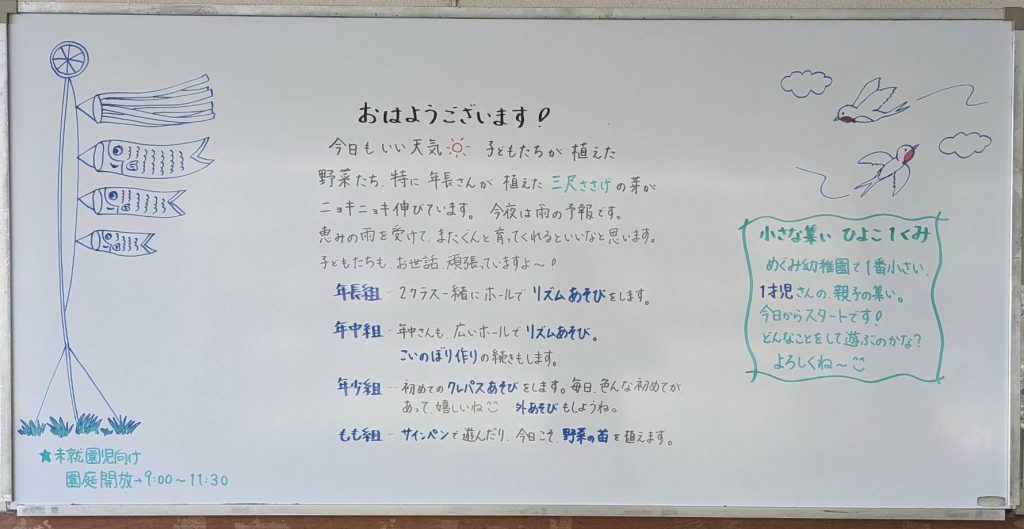 おはようございます!
今日もいい天気 子どもたちが植えた
野菜たち、特に年長さんが植えた三尺ささげの芽が
ニョキニョキ伸びています。今夜は雨の予報です。
恵みの雨を受けて、またぐんと育ってくれるといいなと思います。
子どもたちも、お世話、頑張っていますよ〜!
年長組…2クラス一緒にホールでリズムあそびをします。
年中組…年中さんも、広いホールでリズムあそび。
こいのぼり作りの続きもします。
年少組…初めてのクレパスあそびをします。毎日、色んな初めてが
あって、嬉しいね 外あそびもしようね。
もも組…サインペンで遊んだり、今日こそ、野菜の苗を植えます。
★未就園児向け
園庭開放→9:00〜11:30
小さな集い ひよこ1くみ
めぐみ幼稚園で1番小さい、
1才児さんの、親子の集い。
今日からスタートです!
どんなことをして遊ぶのかな?
よろしくね〜